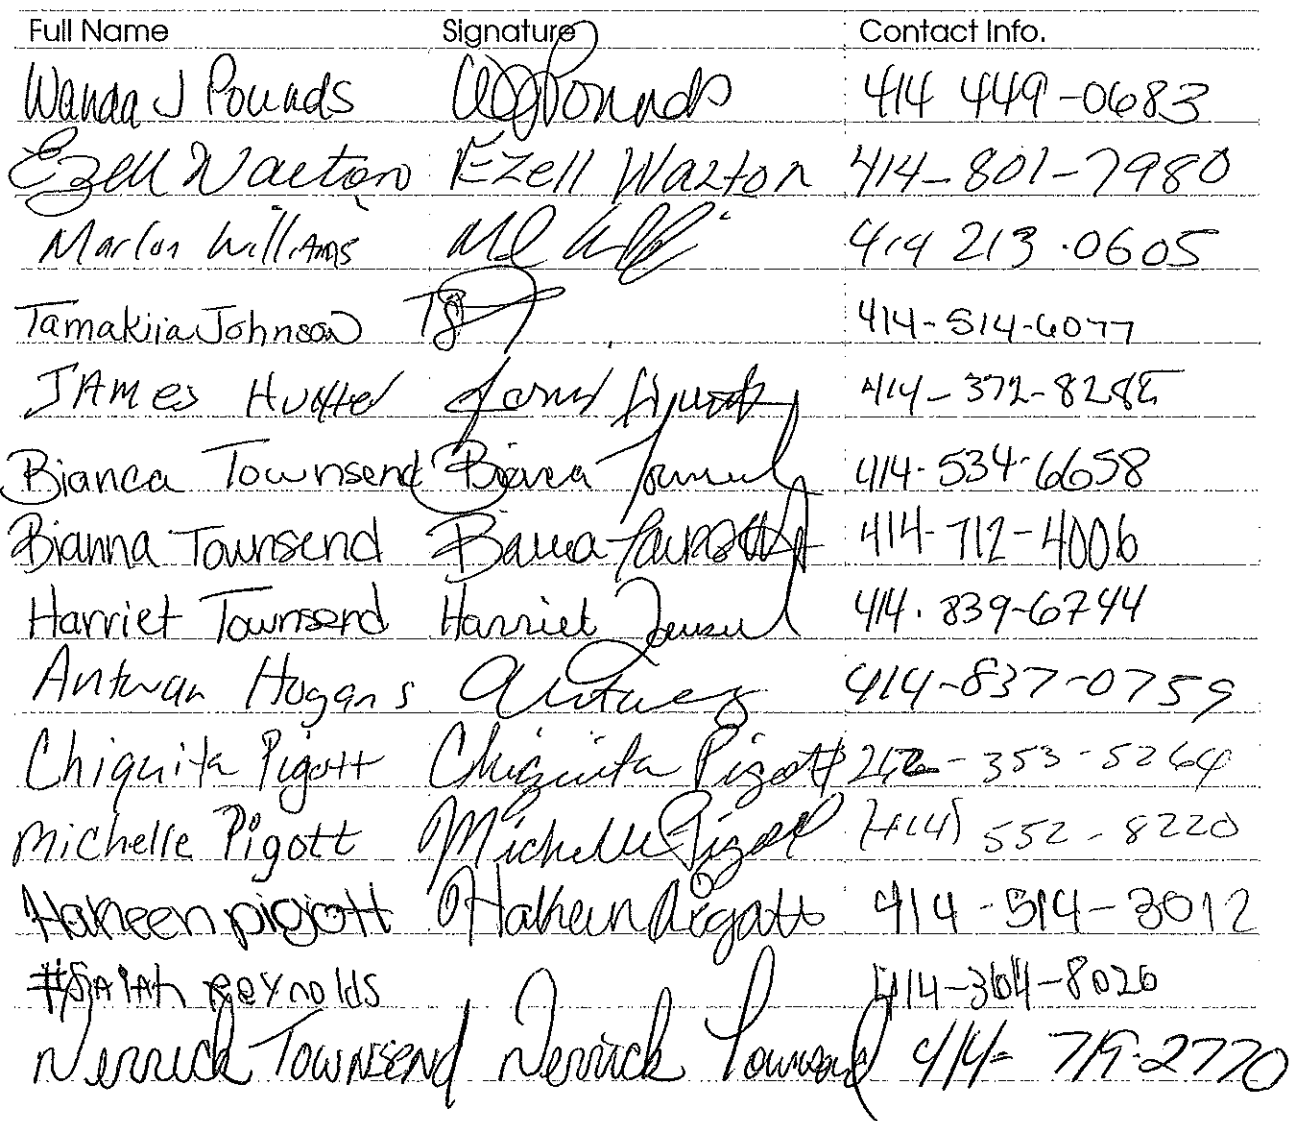 Full Name Signature Contact Info.
Wanda J Pounds WJPounds 414 449-0683
Ezell Walton Ezell Walton 414-801-7980
Marlon Williams 414 213.0605
Tamakiia Johnson 414-514-6077
JAMes James 414-372-828
Bianca Townsend Bianca Townsend 414-534-6658
Bianna Townsend Bianna 414-712-4006
Harriet Townsend Harriet Townsend 414.839-6744
Antwan Hogans 414-837-0759
Chiquita Pigott Chiquita Pigott 262-353-5264
Michelle Pigott Michelle Pigott (414) 552-8220
Hakeen pigott Hakeen Pigott 414-514-3012
ISAIAh ReYnolds 414-364-8026
Nerrick Townsend Nerrick Townsend 414-719-2770